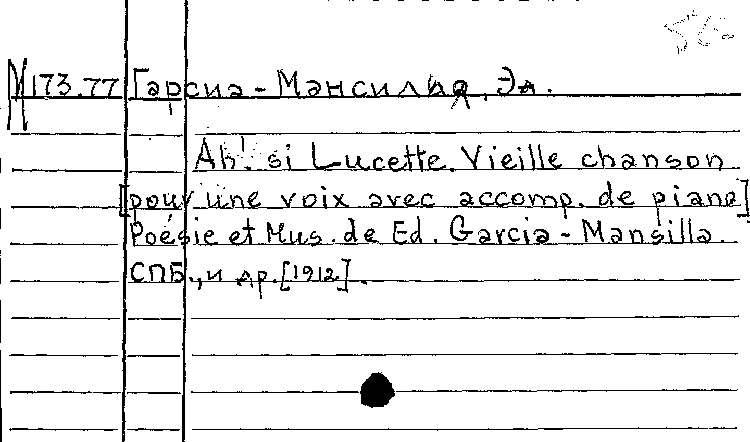 173.77 Гарсиа-Мансилья, Эд.
Ah! si Lucette. Vieille chanson
[pour une voix avec accomp. de piano]
Poésie et Mus. de Ed. Garcia-Mansilla.
СПБ., и др. [1912].